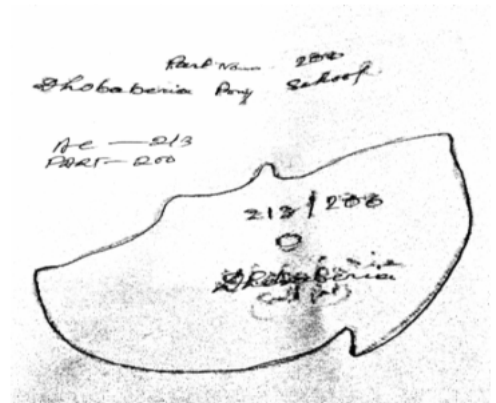 Part No. 200
Dhobaberia Pry School
AC — 213
PART — 200
213 / 200
Dhobaberia